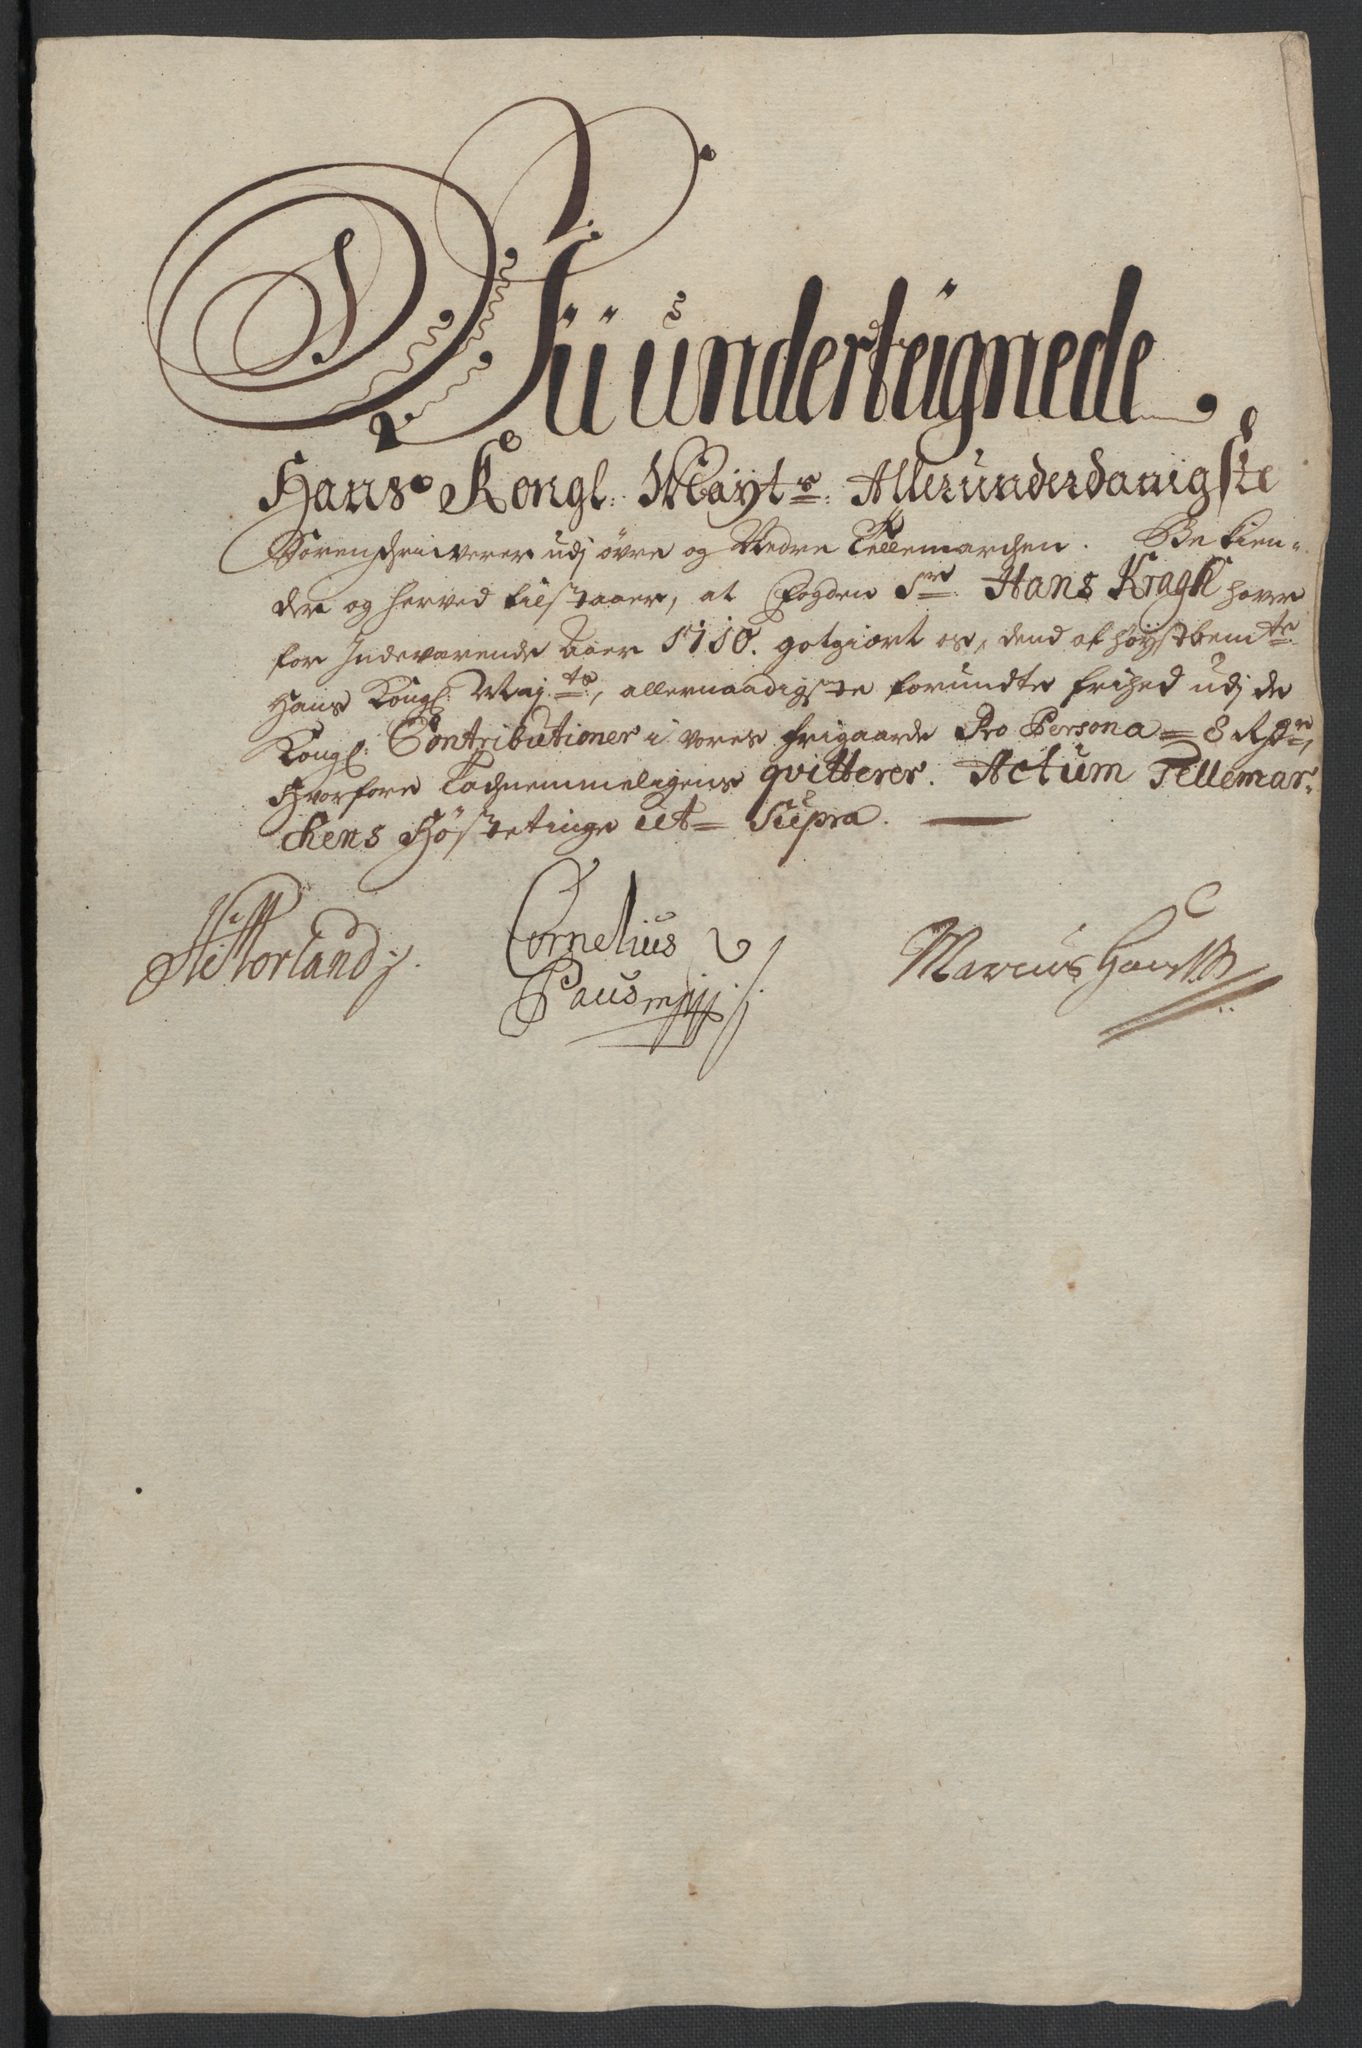 Vii underteignede
Hans Kongl: Mayts: Allerunderdanigste
Sorenschriwerer udj øvre og Nedre Tellemarchen. Bekien-
der og herved tilstaaer, at Fogden Sr. Hans Kragh hawer
for Indeværende Aaer 1710. gotgiort os, dend af høystbemte
Hans Kongl: Maj:ts, allernaadigste forundte frihed udj de
Kongl: Contributioner i vores frigaarde Pro Persona = 8 Rdr,
Hvorfore Tachnemmeligens qvitterer. Actum Tellemar-
chens Höstetinge ut Supra.
Cornelius
Paus mppp
Marcus